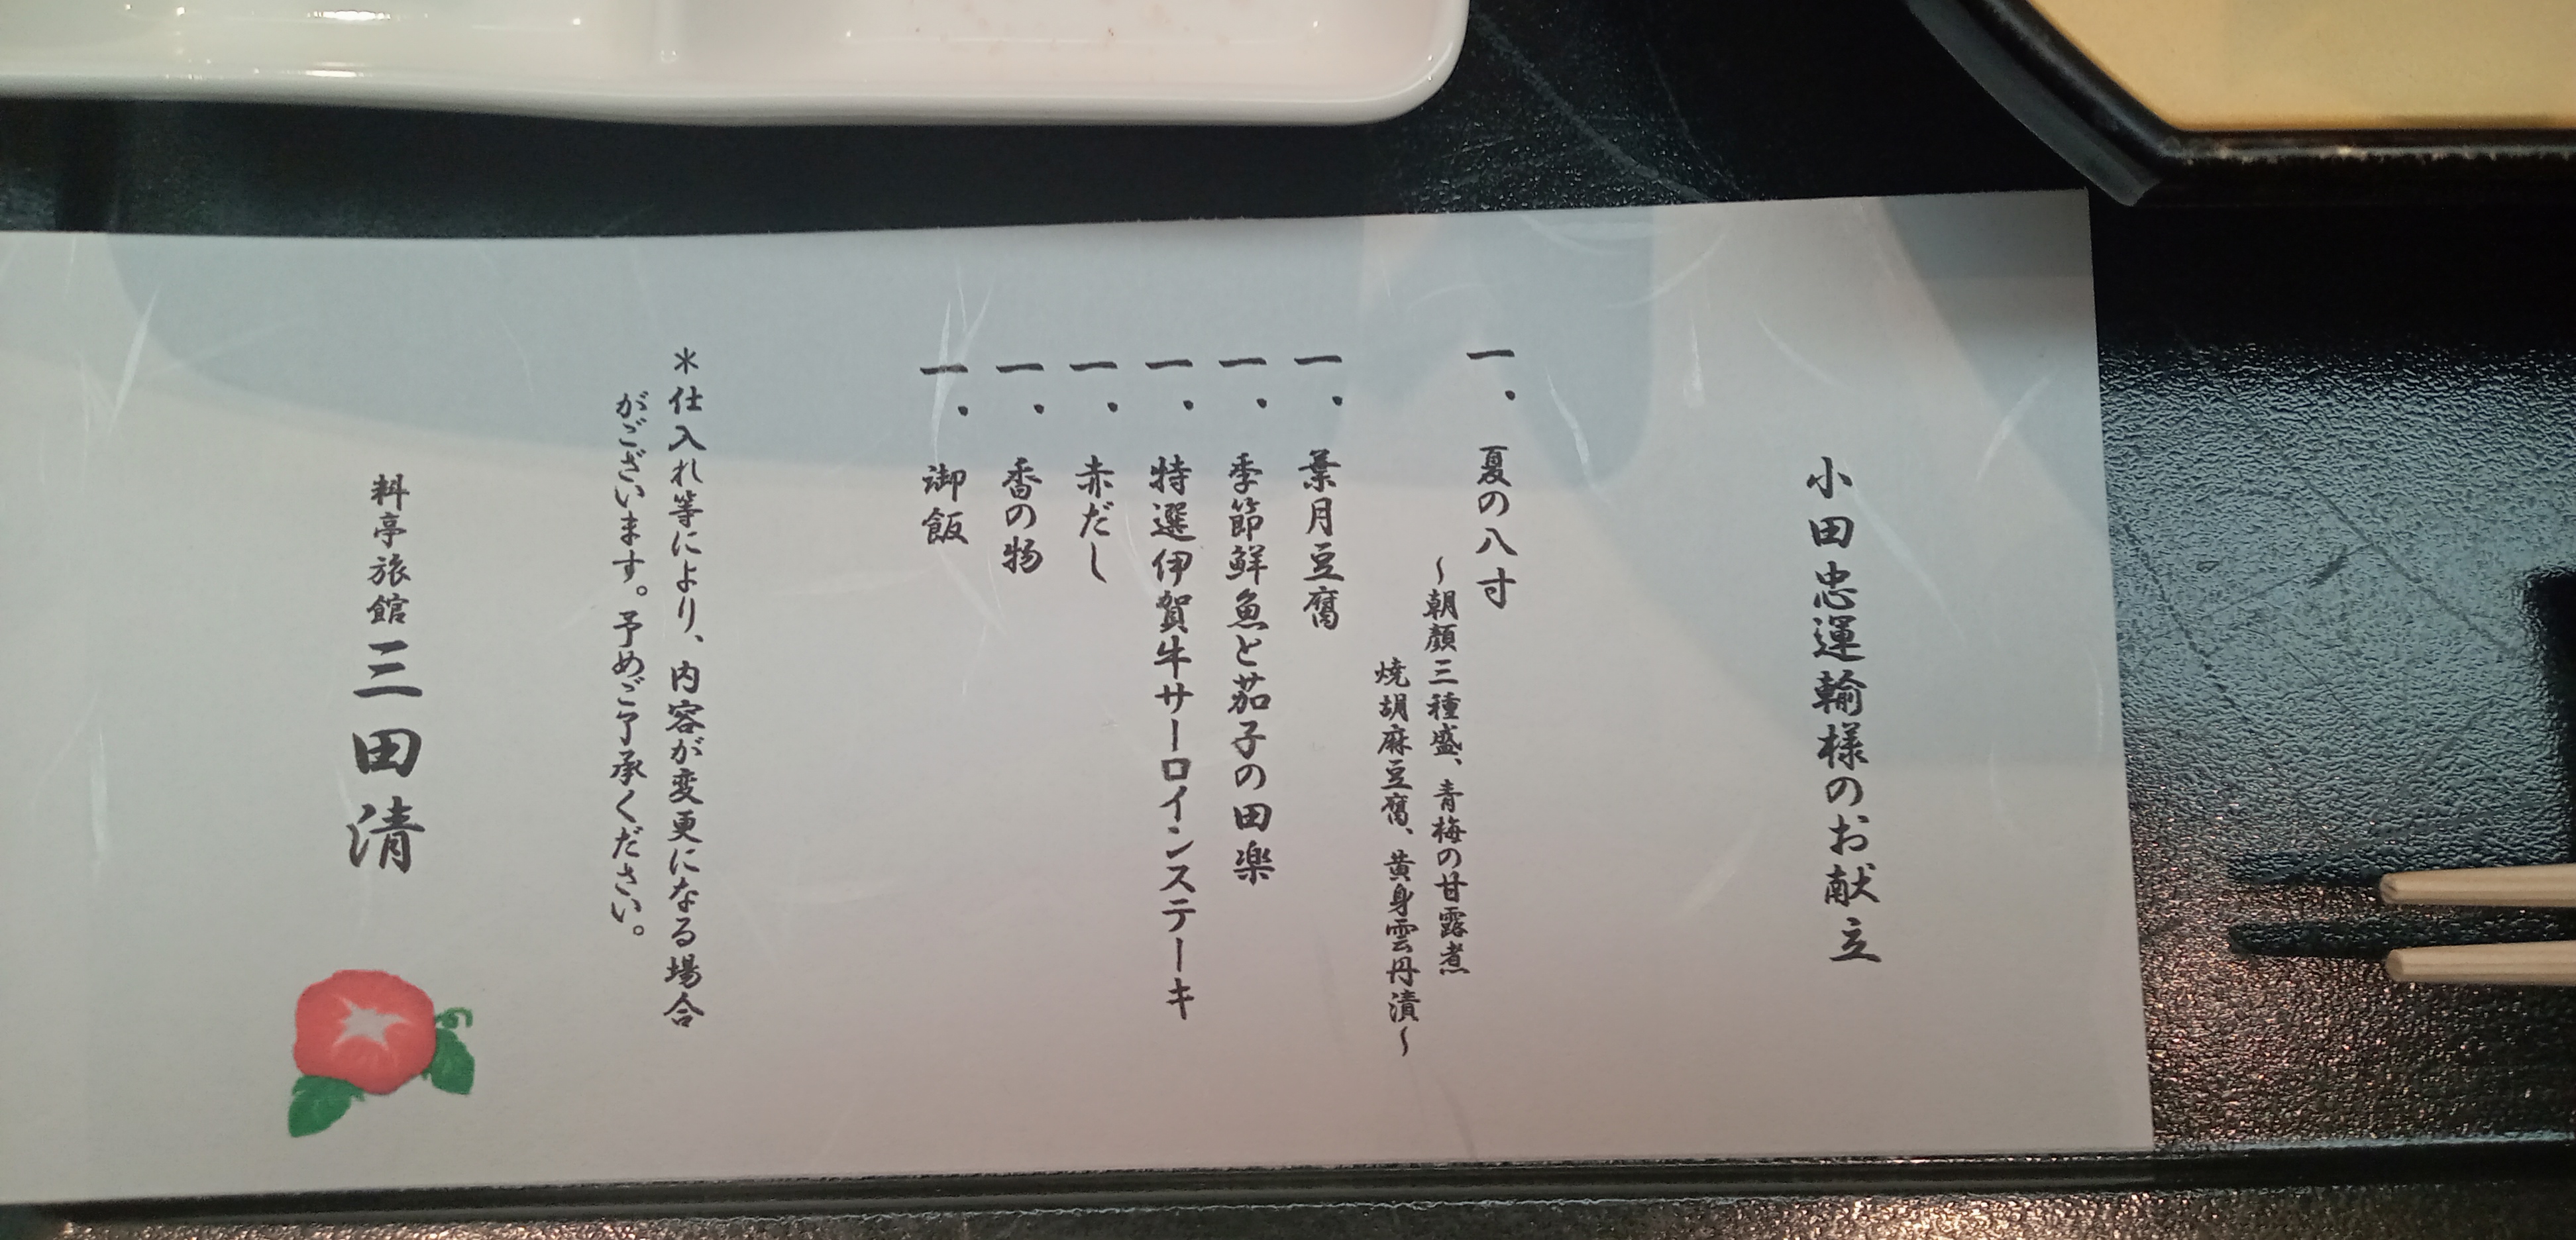 小田忠運輸様のお献立
一. 夏の八寸
～朝顔三種盛、青梅の甘露煮
焼胡麻豆腐、黄身雲丹漬～
一. 葉月豆腐
一. 季節鮮魚と茄子の田楽
一. 特選伊賀牛サーロインステーキ
一. 赤だし
一. 香の物
一. 御飯
＊仕入れ等により、内容が変更になる場合
がございます。予めご了承ください。
料亭旅館 三田清